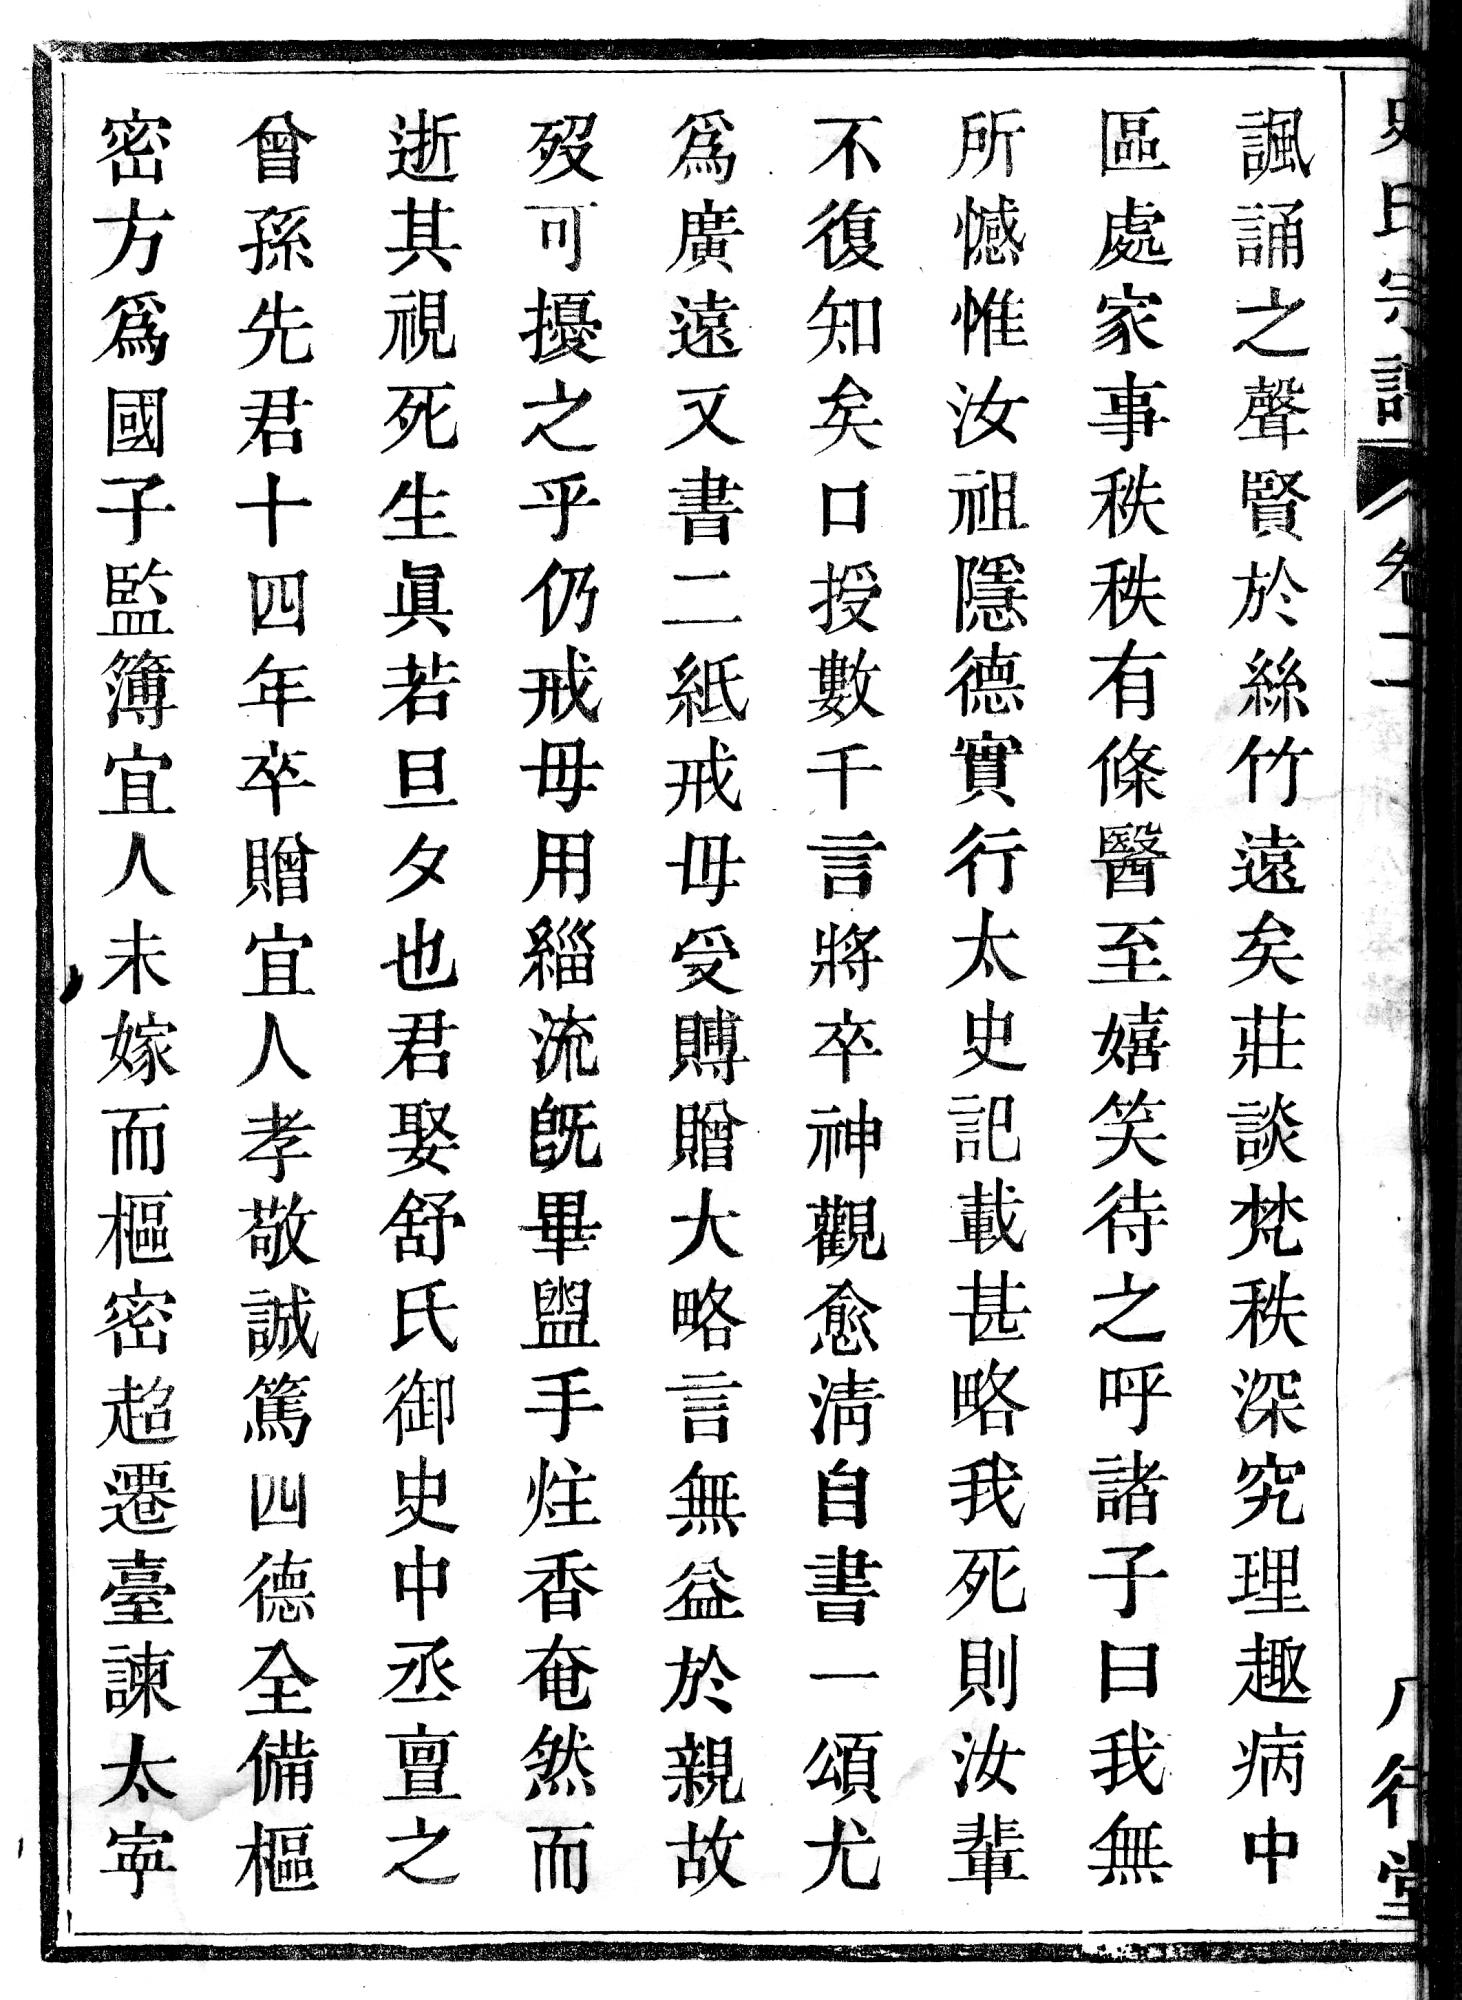 史氏宗譜 卷二 八行堂
諷誦之聲賢於絲竹遠矣莊談梵秩深究理趣病中
區處家事秩秩有條醫至嬉笑待之呼諸子曰我無
所憾惟汝祖隱德實行太史記載甚略我死則汝輩
不復知矣口授數千言將卒神觀愈淸自書一頌尤
爲廣遠又書二紙戒毋受賻贈大略言無益於親故
歿可擾之乎仍戒毋用緇流旣畢盥手炷香奄然而
逝其視死生眞若旦夕也君娶舒氏御史中丞亶之
曾孫先君十四年卒贈宜人孝敬誠篤四德全備樞
密方爲國子監簿宜人未嫁而樞密超遷臺諫太寜